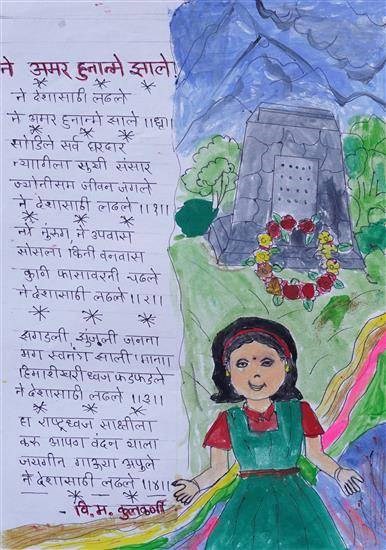 ते अमर हुतात्मे झाले!
ते देशासाठी लढले
ते अमर हुतात्मे झाले ।।धृ।।
सोडिले सर्व घरदार
त्यागीला सुखी संसार
ज्योतीसम जीवन जगले
ते देशासाठी लढले ।।१।।
तो तुरुंग, ते उपवास
सोसला किती वनवास
कुणी फासावरती चढले
ते देशासाठी लढले ।।२।।
झगडली, झुंजली जनता
मग स्वतंत्र झाली माता
हिमाद्रीवरी ध्वज फडफडले
ते देशासाठी लढले ।।३।।
हा राष्ट्रध्वज साक्षीला
करू आपण वंदन याला
जयगीत गाऊया अपुले
ते देशासाठी लढले ।।४।।
- वि. म. कुलकर्णी